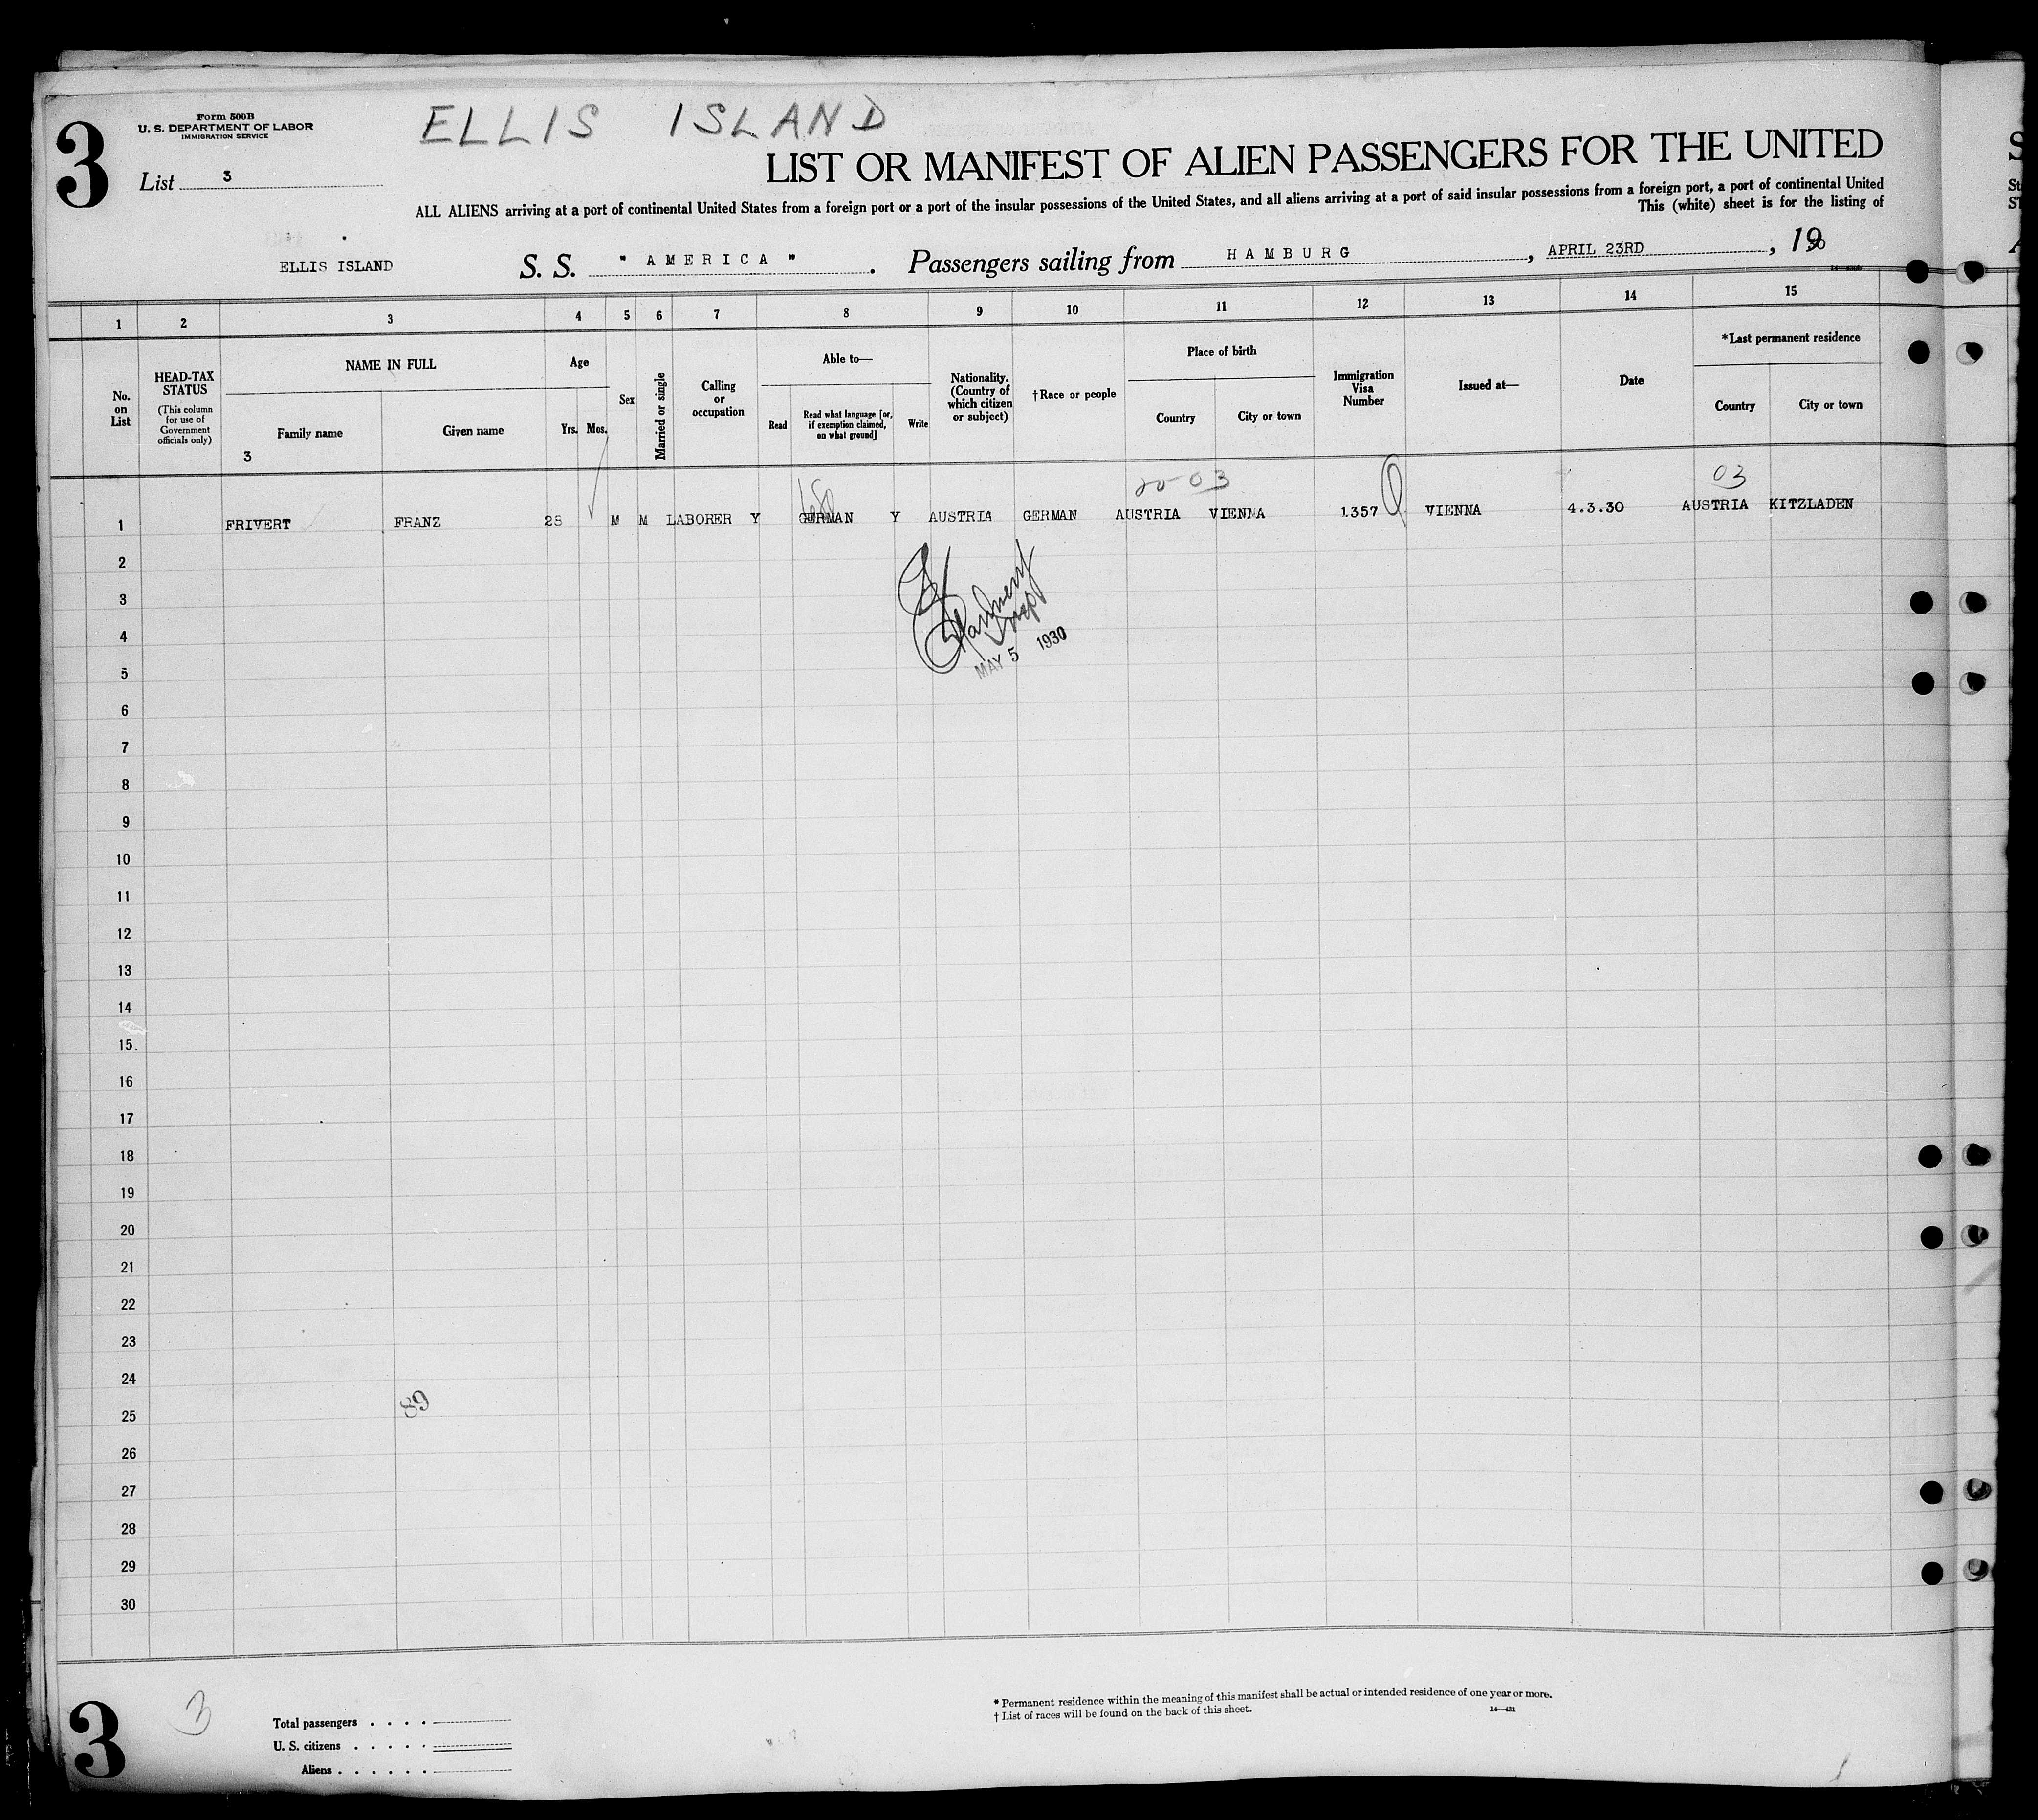 3
Form 500B
U. S. DEPARTMENT OF LABOR
IMMIGRATION SERVICE
List 3
ELLIS ISLAND
LIST OR MANIFEST OF ALIEN PASSENGERS FOR THE UNITED
ALL ALIENS arriving at a port of continental United States from a foreign port or a port of the insular possessions of the United States, and all aliens arriving at a port of said insular possessions from a foreign port, a port of continental United
This (white) sheet is for the listing of
ELLIS ISLAND S. S. " AMERICA " . Passengers sailing from HAMBURG , APRIL 23RD , 1930
1 2 3 4 5 6 7 8 9 10 11 12 13 14 15
No. on List
HEAD-TAX STATUS
(This column for use of Government officials only)
NAME IN FULL
Family name
Given name
3
Age
Yrs. Mos.
Sex
Married or single
Calling or occupation
Able to—
Read
Read what language [or, if exemption claimed, on what ground]
Write
Nationality. (Country of which citizen or subject)
†Race or people
Place of birth
Country
City or town
Immigration Visa Number
Issued at—
Date
*Last permanent residence
Country
City or town
20-03
03
1 FRIVERT FRANZ 28 M M LABORER Y GERMAN Y AUSTRIA GERMAN AUSTRIA VIENNA 1357 VIENNA 4.3.30 AUSTRIA KITZLADEN
2
3
4
MAY 5 1930
5
6
7
8
9
10
11
12
13
14
15
16
17
18
19
20
21
22
23
24
89
25
26
27
28
29
30
3
3
Total passengers . . . .
U. S. citizens . . . . .
Aliens . . . . . .
* Permanent residence within the meaning of this manifest shall be actual or intended residence of one year or more.
† List of races will be found on the back of this sheet.
14—431